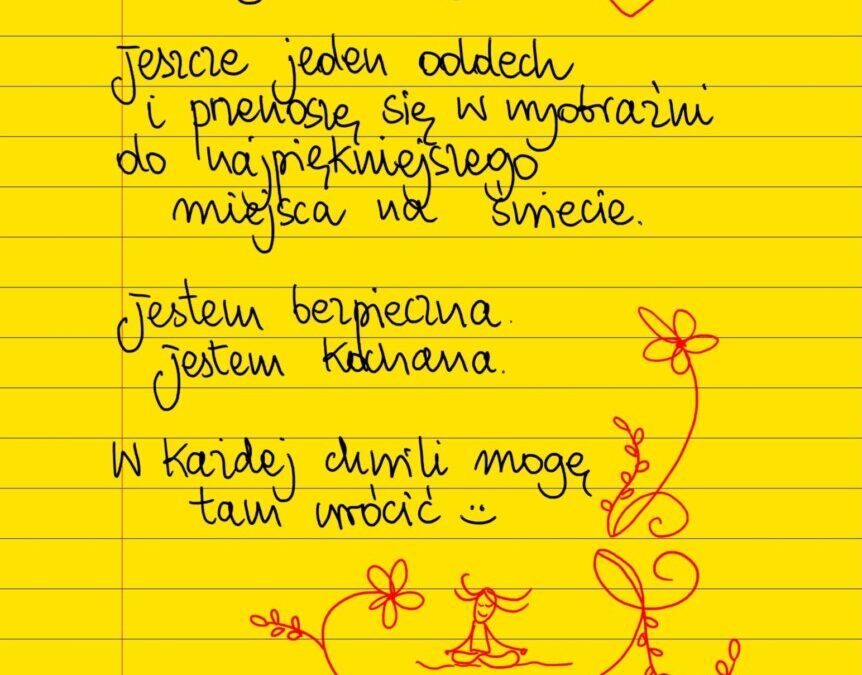 Jeszcze jeden oddech
i przenoszę się w wyobraźni
do najpiękniejszego
miejsca na świecie.
Jestem bezpieczna.
Jestem kochana.
W każdej chwili mogę
tam wrócić :)